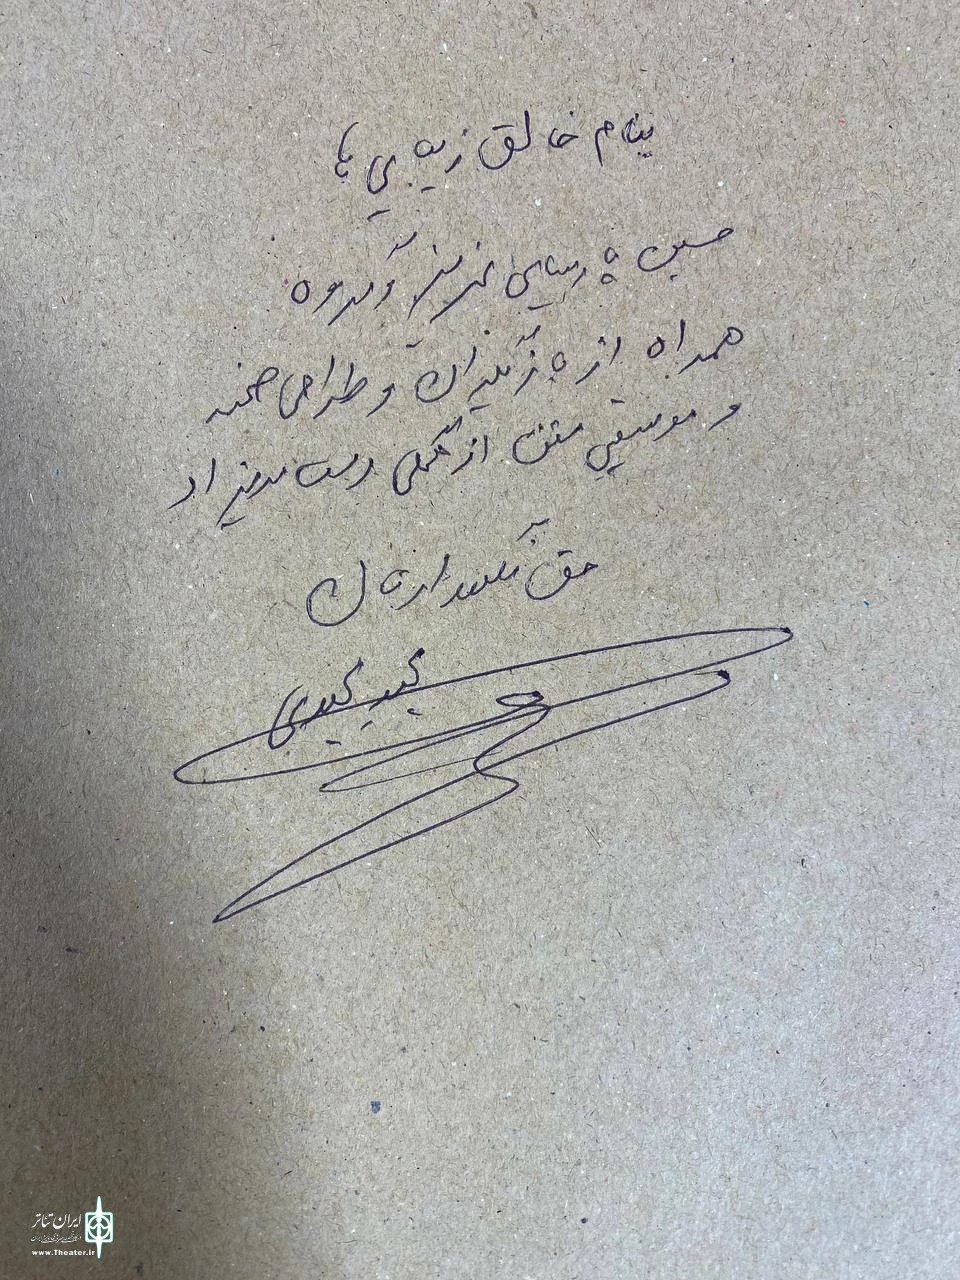 بنام خالق زیبایی ها
حسین پارسایی عزیز و گروه
همراه از بازیگران و طراحی صحنه
و موسیقی متن از همگی دست مریزاد
حق نگهدارتان
مجید
ایران تئاتر
www.Theater.ir